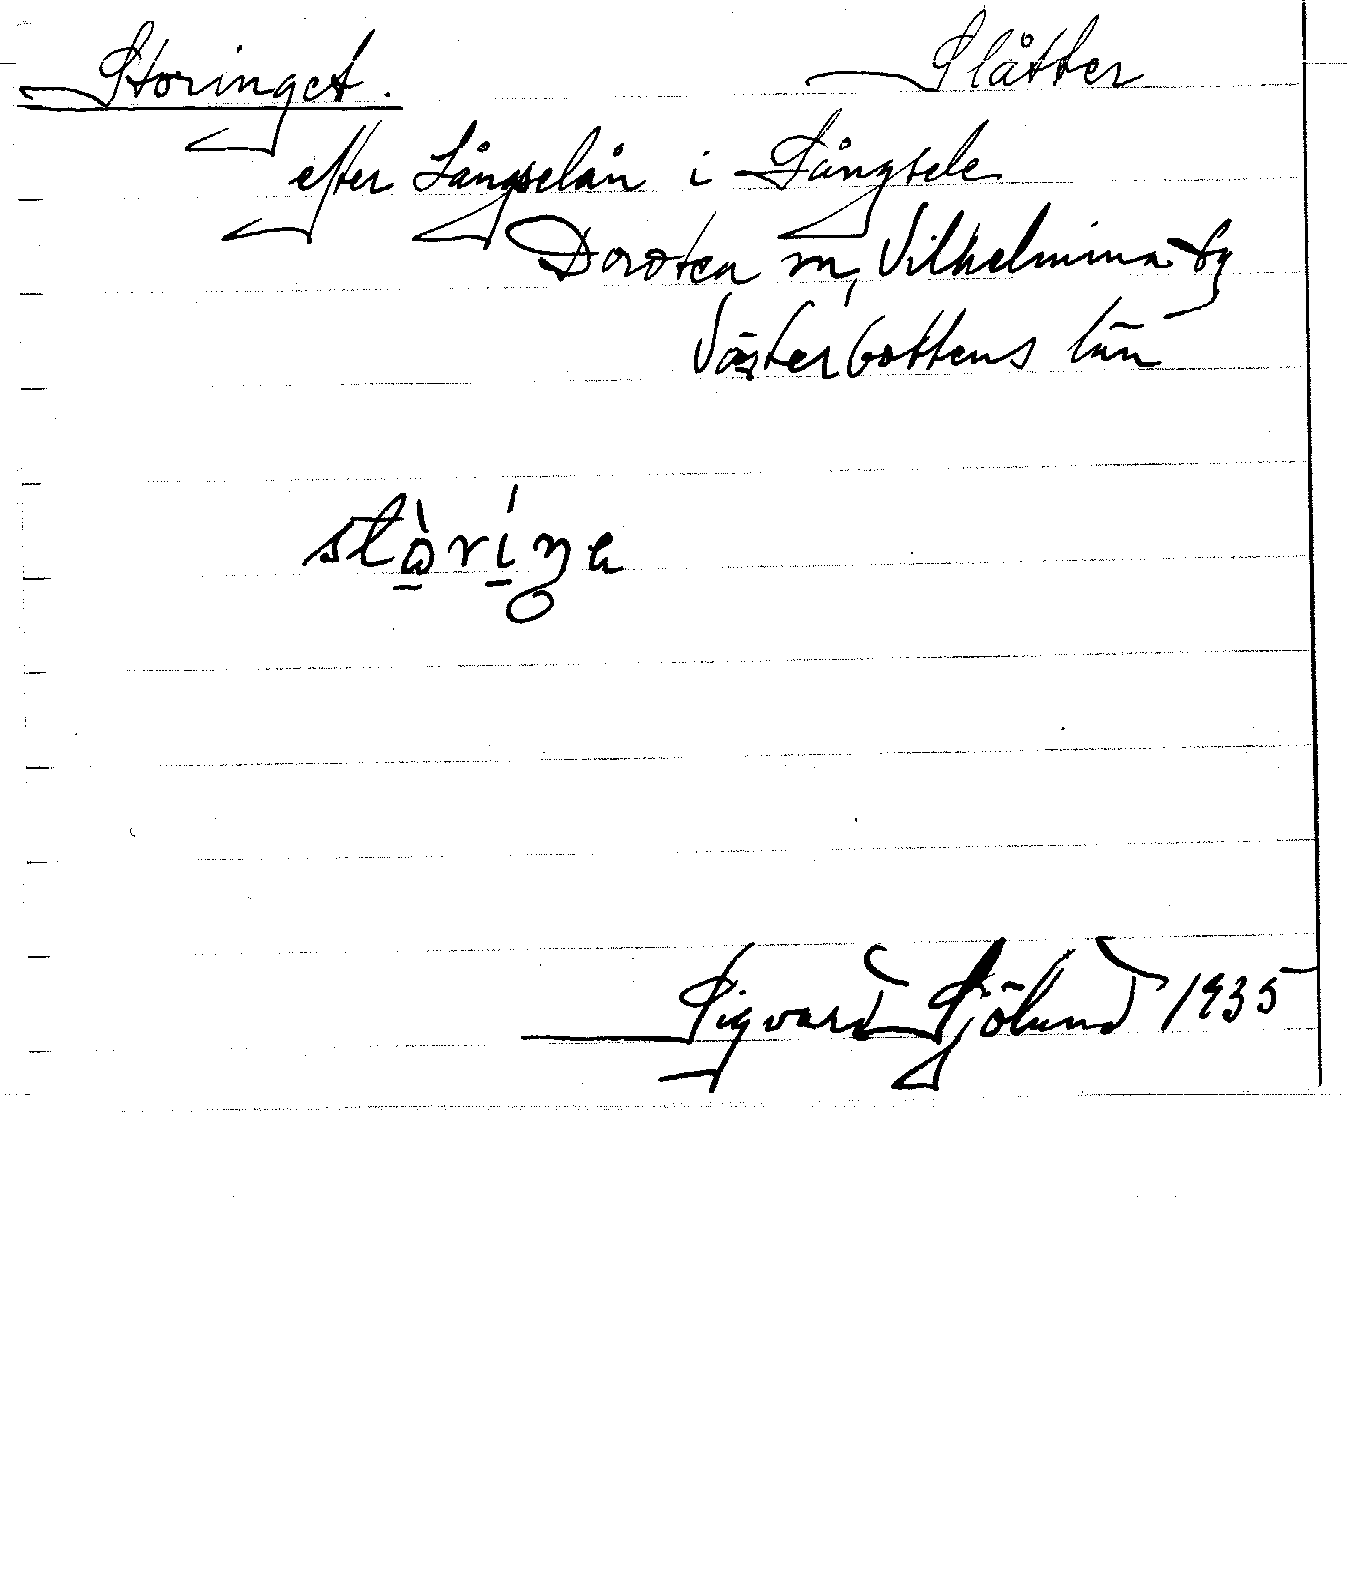 Storinget. Slåtter
efter Långselån i Långsele
Dorotea sn, Vilhelmina tg
Västerbottens län
stòríŋa
Sigvard Sjölund 1935